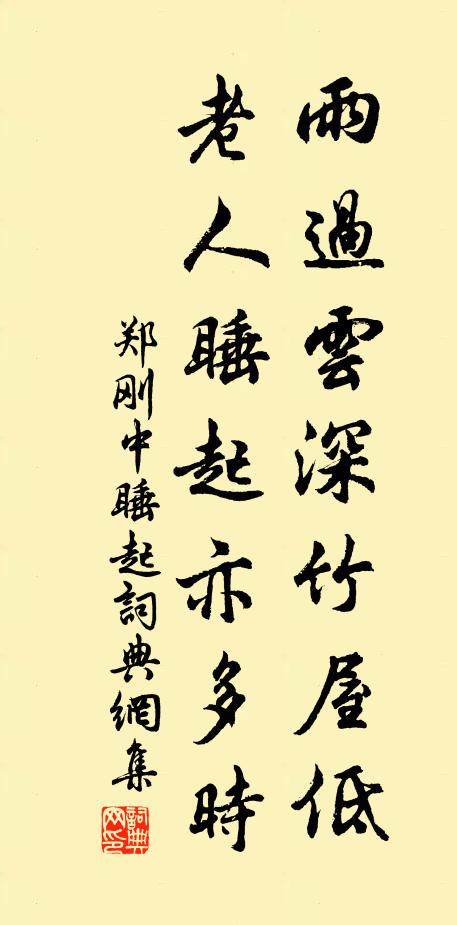 雨過雲深竹屋低
老人睡起亦多時
郑刚中睡起詞典網集
詞典网印